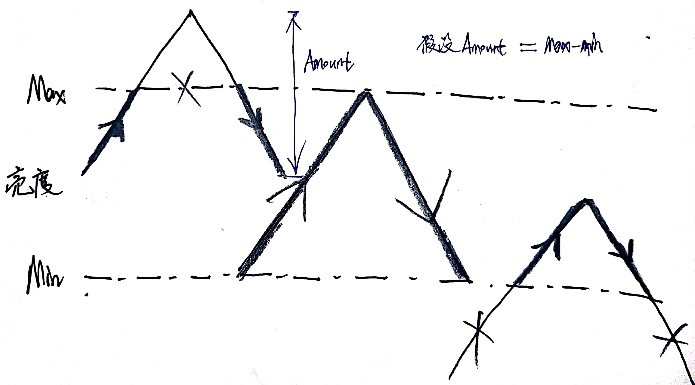 假设Amount = Max-min
Amount
Max
亮度
Min